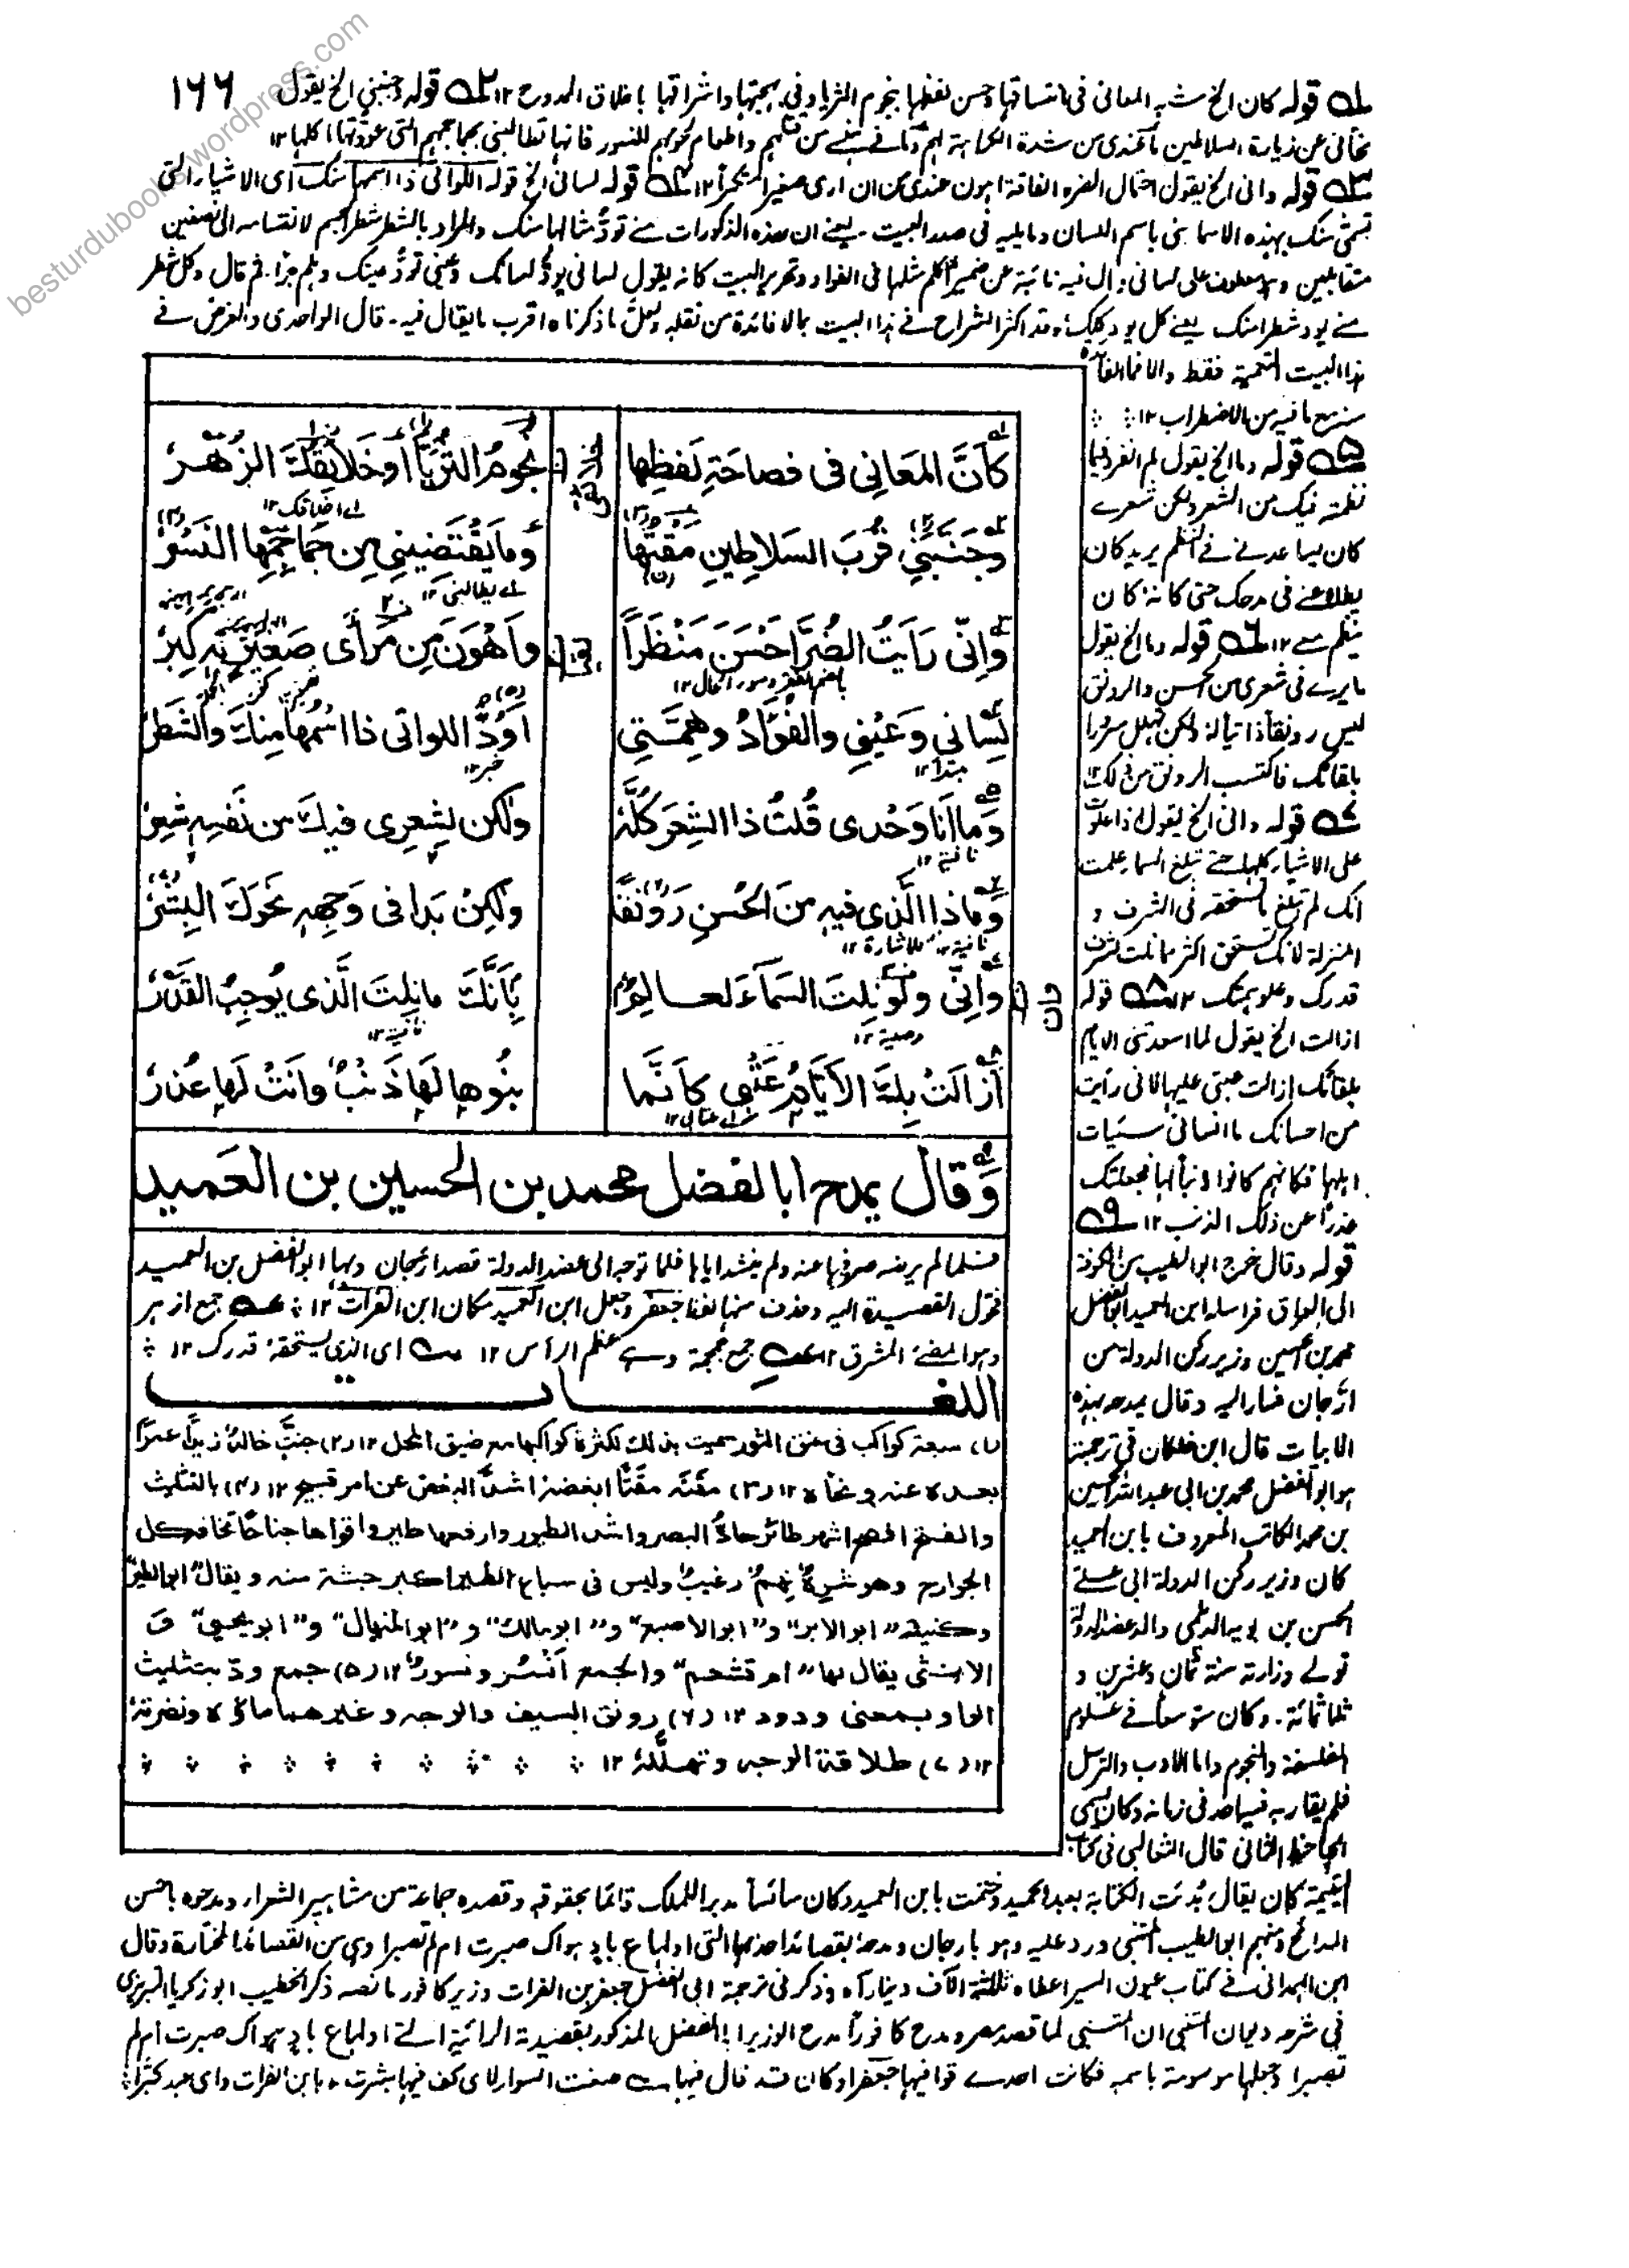 besturdubooks.wordpress.com
١٦٦
لـه قوله كان الخ شبه المعانى فى اتساقها وحسن لفظها بنجوم الثريا وفى بهجتها واشراقها باخلاق الممدوح ١٢ لـه قوله وجنبنى الخ يقول
نحانى عن زيارة السلاطين ما عندى من شدة الكراهة لهم وما فى من قتلهم واطعام لحومهم للنسور فانها تطالبنى بجماجمهم التى عودتها اكلها ١٢
قوله وانى الخ يقول احتمال الضر والفاقة اهون عندى من ان ارى صغيرا متكبرا ١٢ قوله لسانى الخ قوله اللواتى ذا اسمها منك اى الاشياء التى
تسمى منك بهذه الاسماء يعنى باسم اللسان وما يليه فى صدر البيت يعنى ان هذه المذكورات منى تود مثالها منك والمراد بالشطر شطر الجسم لانقسامه الى نصفين
متقابلين وهو معطوف على لسانى وال فيه نائبة عن ضمير المتكلم مثلها فى الفؤاد وتحرير البيت كانه يقول لسانى يود لسانك وعينى تود عينك وهلم جرا. ثم قال وكل شطر
منى يود شطرا منك يعنى كلى يود كلك وقد اكثر الشراح فى هذا البيت بما لا فائدة من نقله ولعل ما ذكرناه اقرب ما يقال فيه۔ قال الواحدى والغرض فى
هذا البيت التعمية فقط والا فما الفائدة
مع ما فيه من الاضطراب ١٢
كَأنَّ المَعَانِي فى فصاحَةِ لَفظِها نُجُومُ الثُرَيَّا أوخَلَائِقُكَ الزُهْرُ
وجَنَّبَنِي قُربَ السَلاطِينِ مَقْتُها وَما يَقْتَضِيني مِن جَماجِمِها النَسْرُ
وَاِنِّى رَايَتُ الضُرَّ احْسَنَ مَنْظَرًا واَهْوَنَ مِن مَرْأى صَغِيرٍ بِهِ كِبْرُ
لِسَانِي وَعَيْنِي والفُؤَادُ وهِمَّتِي اَوُدُّ اللواتى ذا اسْمُها مِنكَ والشَطْرُ
وَما اَنَا وَحْدى قُلتُ ذا الشِعرَ كُلَّهُ ولٰكن لِشِعرِى فيكَ من نَفسِهِ شِعرُ
وَماذا الَّذى فيهِ مِنَ الحُسنِ رَوْنَقًا ولٰكِنْ بَدا فى وَجهِهِ نَحوَكَ البِشْرُ
وَاِنِّى ولَو نِلتَ السَمَآءَ لعـالِمٌ بِاَنَّكَ مانِلتَ الَّذى يُوجِبُ القَدْرُ
اَزالَتْ بِكَ الاَيَّامُ عَتْبِى كاَنَّما بَنُوها لَهَا ذَنْبٌ وانَتْ لَها عُذْرُ
وَقَال يمدح ابا الفضل محمد بن الحسين بن العَميد
فلما لم يرضه صرفها عنه ولم ينشد اياها فلما توجه الى عضد الدولة قصد ارجان وبها ابو الفضل بن العميد
فحول القصيدة اليه وحذف منها لفظ جعفر وجعل ابن العميد مكان ابن الفرات ١٢ جمع ازهر
وهو المضئ المشرق ١٢ جمع جمجمة وهى عظم الرأس ١٢ اى الذى يستحقه قدرك ١٢
اللغـــــات
(١) سبعة كواكب فى عنق الثور سميت بذلك لكثرة كواكبها مع ضيق المحل ١٢ (٢) جنَّبَ خالدٌ زيدًا عمرًا
بعده عنه ونحاه ١٢ (٣) مقته مقتًا ابغضه اشد البغض عن امر قبيح ١٢ (٤) بالتثليث
والفتح افصح اشهر طائر حادُّ البصر واشد الطيور وارفعها طيرو اقواها جناحًا تخافه كل
الجوارح وهو شرِهٌ نهِمٌ رغيبٌ وليس فى سباع الطير اكبر جثة منه ويقال ابو الطير
وكنيته "ابو الابرد" و"ابو الاصبع" و"ابو مالك" و"ابو المنهال" و"ابو يحيى" و
الانثى يقال لها "ام قشعم" والجمع اَنْسُر ونسورٌ ١٢ (٥) جمع ودّ بتثليث
الواو بمعنى ودود ١٢ (٦) رونق السيف والوجه وغيرهما ماؤه ونضرته
١٢ (٧) طلاقة الوجه وتهلُّلُهٗ ١٢
قوله وما الخ يقول لم انفرد فيما
نظمته فيك من الشعر ولكن شعرى
كان يساعدنى فى النظم يريد كان
يطاوعنى فى مدحك حتى كانه كان
ينظم معى ١٢ قوله وما الخ يقول
ما يرى فى شعرى من الحسن والرونق
ليس رونقا ذاتيا له ولكن تهلل سرورا
بلقائك فاكتسب الرونق من ذلك ١٢
قوله وانى الخ يقول اذا علوت
على الاشياء كلها حتى تبلغ السماء علمت
انك لم تبلغ ما تستحقه فى الشرف و
المنزلة لانك تستحق اكثر مما نلت لشرف
قدرك وعلو همتك ١٢ قوله
ازالت الخ يقول لما اسعدتنى الايام
بلقائك ازالت عتبى عليها لانى رأيت
من احسانك ما انسانى سيئات
اهلها فكانهم كانوا ذنبا لها فجعلتك
عذرا عن ذلك الذنب ١٢
قوله وقال خرج ابو الطيب من الكوفة
الى العراق فراسله ابن العميد ابو الفضل
محمد بن الحسين وزير ركن الدولة من
ارّجان فسار اليه وقال يمدحه بهذه
الابيات قال ابن خلكان فى ترجمته
هو ابو الفضل محمد بن ابى عبد الله الحسين
بن محمد الكاتب المعروف بابن العميد
كان وزير ركن الدولة ابى على
الحسن بن بويه الديلمى والد عضد الدولة
تولى وزارته سنة ثمان وعشرين و
ثلثمائة۔ وكان متوسعا فى علوم
الفلسفة والنجوم واما الادب والترسل
فلم يقاربه فيه احد فى زمانه وكان يسمى
الجاحظ الثانى قال الثعالبى فى كتاب
اليتيمة كان يقال بُدئت الكتابة بعبد الحميد وختمت بابن العميد وكان سائسا مدبرا للملك قائما بحقوقه وقصده جماعة من مشاهير الشعراء ومدحوه باحسن
المدائح ومنهم ابو الطيب المتنبى ورد عليه وهو بارجان ومدحه بقصائد احدها التى اولها ع باد هواك صبرت ام لم تصبرا وهى من القصائد المختارة وقال
ابن الهمدانى فى كتاب عيون السير اعطاه ثلثة آلاف دينار اه وذكر فى ترجمة ابى الفضل جعفر بن الفرات وزير كافور ما نصه ذكر الخطيب ابو زكريا التبريزى
فى شرحه ديوان المتنبى ان المتنبى لما قصد مصر ومدح كافورا مدح الوزير ابا الفضل المذكور بقصيدته الرائية التى اولها ع باد هواك صبرت ام لم
تصبرا وجعلها موسومة باسمه فكانت احدى قوافيها جعفرا وكان قد قال فيها صغت السوار لاى كف فيها بشرت ، بابن الفرات واى عبد كبرا